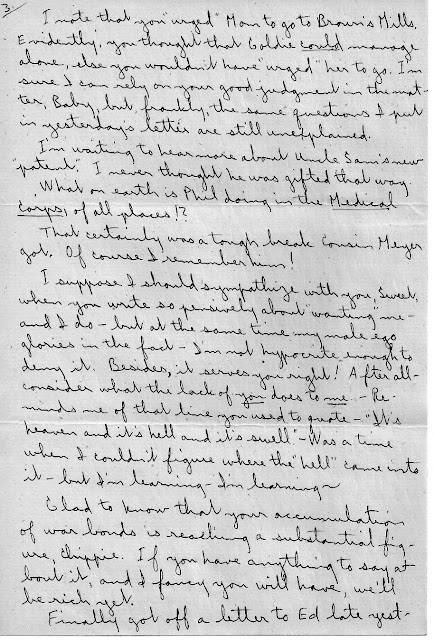 3.
I note that you "urged" Mom to go to Brown's Mills.
Evidently, you thought that Goldie could manage
alone, else you wouldn't have "urged" her to go. I'm
sure I can rely on your good judgment in the mat-
ter, Baby, but frankly, the same questions I put
in yesterday's letter are still unexplained.
I'm waiting to hear more about Uncle Sam's new
"patent". I never thought he was gifted that way.
What on earth is Phil doing in the Medical
Corps, of all places!?
That certainly was a tough break Cousin Meyer
got. Of course I remember him!
I suppose I should sympathize with you, Sweet,
when you write so pensively about "wanting" me -
and I do - but at the same time my male ego
glories in the fact - I'm not hypocrite enough to
deny it. Besides, it serves you right! After all -
consider what the lack of you does to me. - Re-
minds me of that line you used to quote - "It's
heaven and it's hell and it's swell" - Was a time
when I couldn't figure where the "hell" came into
it - but I'm learning - I'm learning -
Glad to know that your accumulation
of war bonds is reaching a substantial fig-
ure, Chippie. If you have anything to say a-
bout it, and I fancy you will have, we'll
be rich yet.
Finally got off a letter to Ed late yest-